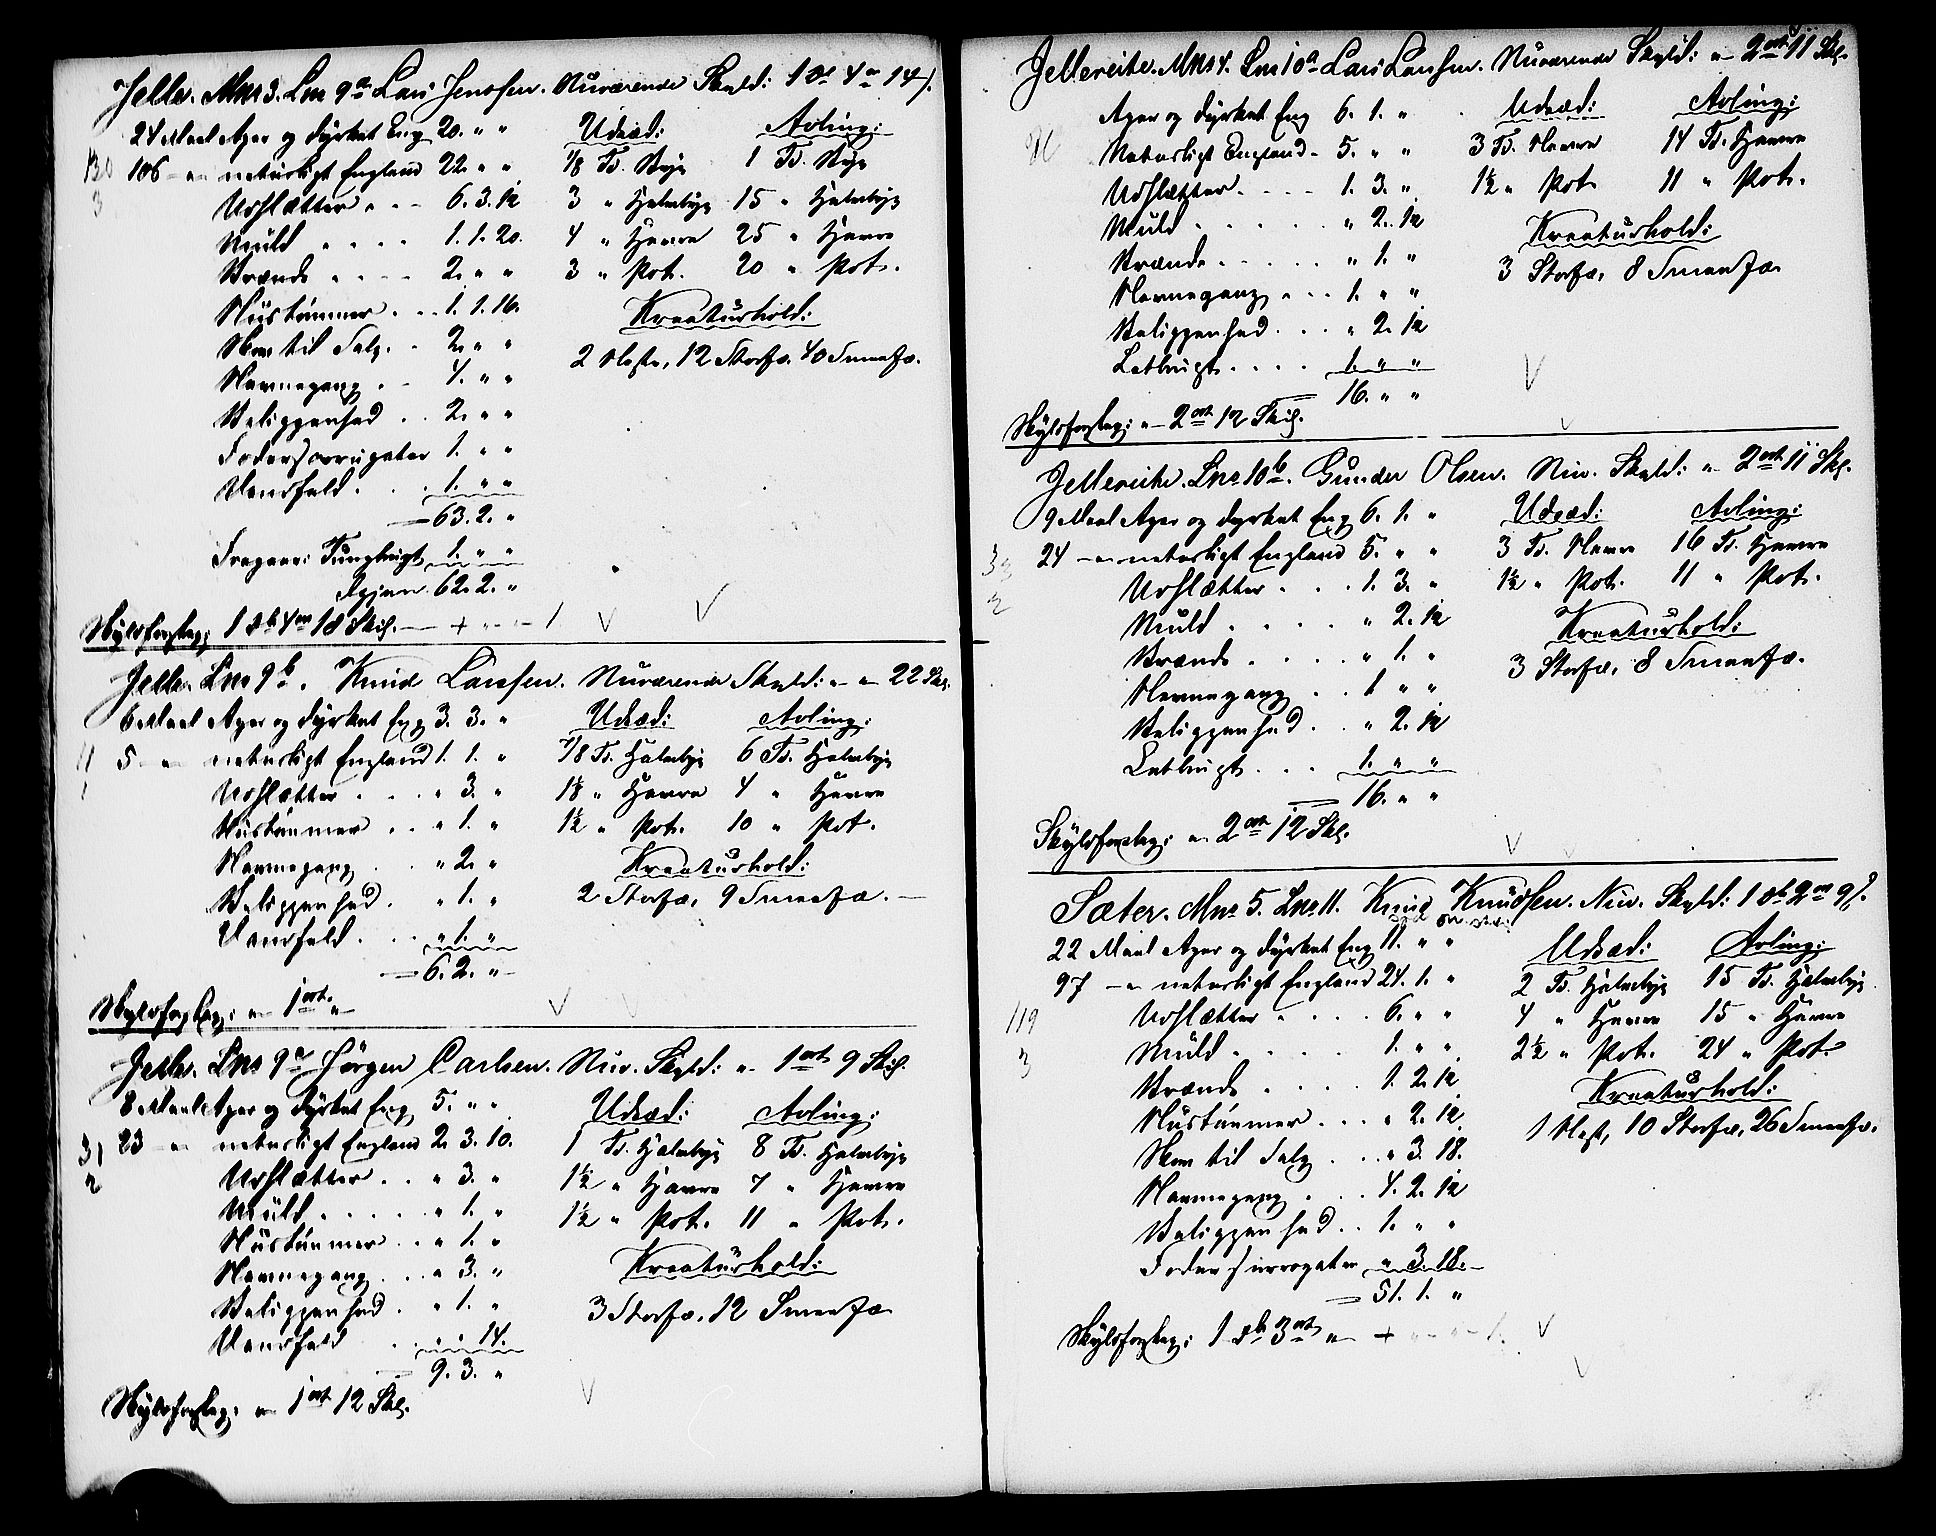 Jelle. Mno 3. Lno 9a Lars Jensen. Nuværende Skyld: 1 Dr 4 ort 14 s.
24 Maal Ager og dyrket Eng 20. " " Udsæd: Avling:
130 106 — " — naturligt England 22. " " 1/8 Td. Byg 1 Td. Byg
3 Udslætter . . . 6. 3. 12 3 " Halvbyg 15 " Halvbyg
Muld . . . . 1. 1. 20. 4 " Havre 25 " Havre
Brænde . . . . 2. " " 3 " Pot. 20 " Pot.
Hustømmer . . . 1. 1. 16. Kreaturhold:
Skov til Salg . . 2. " " 2 Heste, 12 Storfæ. 40 Smaafæ.
Havnegang . . 4. " "
Beliggenhed . . 2. " "
Fodersurrogater 1. " "
Vandfald . . . 1. " "
= 63. 2. "
Fragaar: Tungbrugt 1. " "
Igjen 62. 2. "
Skyldforslag: 1 Dr 4 ort 18 Skil. — + " — " — 1.
Jelle. Lno 9b. Knud Larssen. Nuværende Skyld: " — " 22 Sk.
6 Maal Ager og dyrket Eng 3. 3. " Udsæd: Avling:
11 5 — " — naturligt England 1. 1. " 7/8 Td. Halvbyg 6 Td. Halvbyg
1 Udslætter . . . " 3. " 1 1/2 " Havre 4 " Havre
Hustømmer . . " 1. " 1 1/2 " Pot. 10 " Pot.
Havnegang . . " 2. " Kreaturhold:
Beliggenhed . " 1. " 2 Storfæ, 9 Smaafæ. —
Vandfald . . . " 1. "
= 6. 2. "
Skyldforslag: " — 1 ort " —
Jelle. Lno 9c Jørgen Carlsen. Nuv. Skyld: " 1 ort 9 Skil.
8 Maal Ager og dyrket Eng 5. " " Udsæd: Avling:
31 23 — " naturligt England 2. 3. 10. 1 Td. Halvbyg 8 Td. Halvbyg
2 Udslætter . . " 3. " 1 1/2 " Havre 7 " Havre
Muld . . . . . " 1. " 1 1/2 " Pot. 11 " Pot.
Hustømmer . . " 1. " Kreaturhold:
Havnegang . . . " 3. "
Beliggenhed . " 1. " 3 Storfæ, 12 Smaafæ
Vandfald . " " 14.
9. 3. "
Skyldforslag: " — 1 ort 12 Sk.
Jellereite. Mno 4. Lno 10a Lars Larsen. Nuværende Skyld: " — 2 ort 11 Sk.
Ager og dyrket Eng 6. 1. " Udsæd: Avling:
Naturligt England — 5. " " 3 Td. Havre 14 Td. Havre
Udslætter . . . . 1. 3. " 1 1/2 " Pot. 11 " Pot.
Muld . . . . . " 2. 12 Kreaturhold:
Brænde . . . . . " 1. " 3 Storfæ, 8 Smaafæ.
Havnegang . . . 1. " "
Beliggenhed . . . " 2. 12
Letbrugt . . . . 1. " "
= 16. " "
Skyldforslag: " — 2 ort 12 Skil.
Jellereite. Lno 10b. Gunder Olsen. Nuv. Skyld: " 2 ort 11 Sk.
9 Maal Ager og dyrket Eng 6. 1. " Udsæd: Avling:
33 24 — " — naturligt England 5. " " 3 Td. Havre 16 Td. Havre
2 Udslætter . . . 1. 3. " 1 1/2 " Pot. 11 " Pot.
Muld . . . . . " 2. 12 Kreaturhold:
Brænde . . . . " 1. " 3 Storfæ, 8 Smaafæ.
Havnegang . . 1 " "
Beliggenhed . . " 2. 12
Letbrugt . . . 1. " "
= 16. " "
Skyldforslag: " — 2 ort 12 Sk.
Sæter. Mno 5. Lno 11. Knud Knudsen. Nuv. Skyld: 1 Dr 2 ort 9 s.
22 Maal Ager og dyrket Eng 11. " " Udsæd: Avling:
97 — " — naturligt England 24. 1. " 2 Td. Halvbyg 15 Td. Halvbyg
119 Udslætter . . . . 6. " " 4 " Havre 15 " Havre
3 Muld . . . . 1. " " 2 1/2 " Pot. 24 " Pot.
Brænde . . . . 1. 2. 12 Kreaturhold:
Hustømmer . . . " 2. 12 1 Hest, 10 Storfæ, 26 Smaafæ.
Skov til Salg . . . " 3. 18.
Havnegang . . . 4. 2. 12
Beliggenhed . . 1. " "
Fodersurrogater " 3. 18.
= 51. 1. "
Skyldforslag: 1 Dr 3 ort " — + " — " — 1.